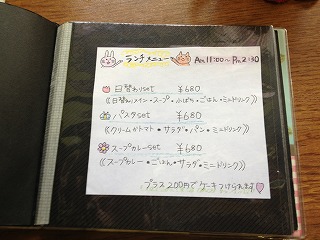 ランチメニュー AM 11:00〜PM 2:30
日替わりset ¥680
((日替わりメイン・スープ・小ばち・ごはん・ミニドリンク))
パスタset ¥680
((クリームorトマト・サラダ・パン・ミニドリンク))
スープカレーset ¥680
((スープカレー・ごはん・サラダ・ミニドリンク))
プラス200円でケーキつけられます